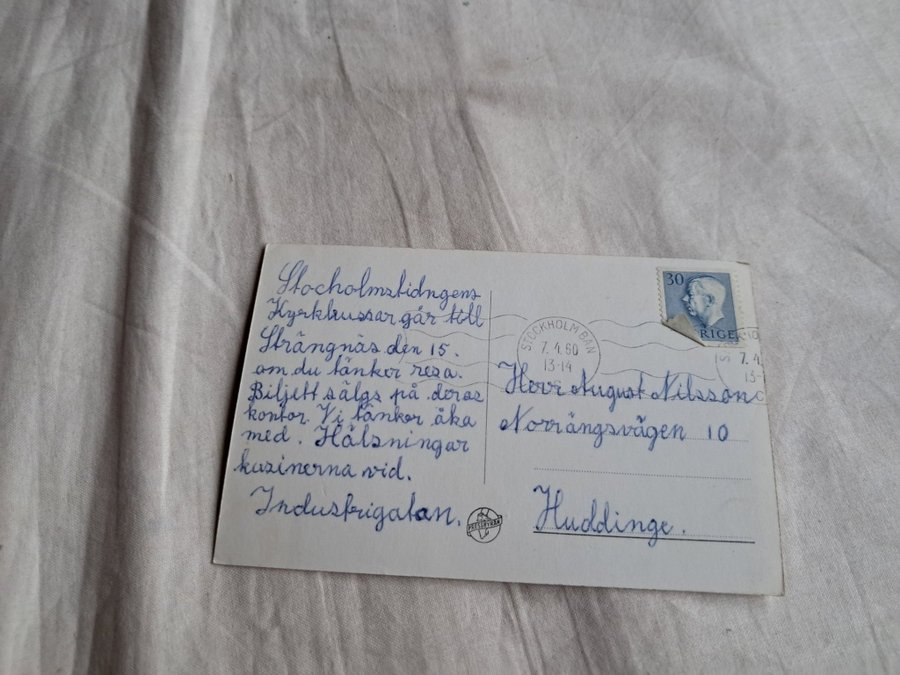 Stocholmstidngens
Kyrkbussar går till
Strängnäs den 15.
om du tänker resa.
Biljett sälgs på deras
kontor. Vi tänker åka
med. Hälsningar
kusinerna vid.
Industrigatan.
30
RIGE
STOCKHOLM BAN
7.4.60
13-14
7.4.
13-
Herr August Nilsson
Norrängsvägen 10
Huddinge.
PRESSBYRÅN